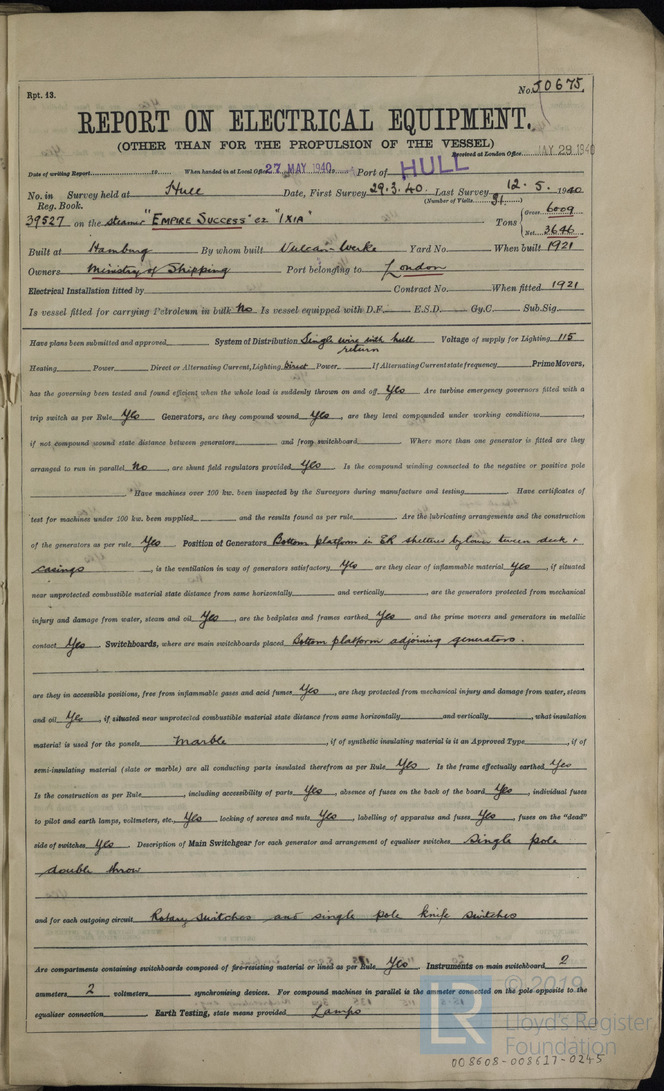 Rpt. 13.
No. 50675.
REPORT ON ELECTRICAL EQUIPMENT.
(OTHER THAN FOR THE PROPULSION OF THE VESSEL)
Received at London Office MAY 29 1940
Date of writing Report 19 When handed in at Local Office 27 MAY 1940 Port of HULL
No. in Survey held at Hull Date, First Survey 29.3.40. Last Survey 12.5.1940
Reg. Book. (Number of Visits 31.)
39527 on the steamer "EMPIRE SUCCESS" ex "IXIA" Tons { Gross 6009
Net 3646
Built at Hamburg By whom built Vulcan-Werke Yard No. When built 1921
Owners Ministry of Shipping Port belonging to London
Electrical Installation fitted by Contract No. When fitted 1921
Is vessel fitted for carrying Petroleum in bulk No Is vessel equipped with D.F. E.S.D. Gy.C. Sub.Sig.
Have plans been submitted and approved System of Distribution Single wire with hull return Voltage of supply for Lighting 115
Heating Power Direct or Alternating Current, Lighting Direct Power If Alternating Current state frequency Prime Movers,
has the governing been tested and found efficient when the whole load is suddenly thrown on and off Yes Are turbine emergency governors fitted with a
trip switch as per Rule Yes Generators, are they compound wound Yes, are they level compounded under working conditions,
if not compound wound state distance between generators and from switchboard Where more than one generator is fitted are they
arranged to run in parallel No, are shunt field regulators provided Yes Is the compound winding connected to the negative or positive pole
Have machines over 100 kw. been inspected by the Surveyors during manufacture and testing Have certificates of
test for machines under 100 kw. been supplied and the results found as per rule Are the lubricating arrangements and the construction
of the generators as per rule Yes Position of Generators Bottom platform in ER sheltered by lower tween deck +
casings, is the ventilation in way of generators satisfactory Yes are they clear of inflammable material Yes, if situated
near unprotected combustible material state distance from same horizontally and vertically, are the generators protected from mechanical
injury and damage from water, steam and oil Yes, are the bedplates and frames earthed Yes and the prime movers and generators in metallic
contact Yes. Switchboards, where are main switchboards placed Bottom platform adjoining generators.
are they in accessible positions, free from inflammable gases and acid fumes Yes, are they protected from mechanical injury and damage from water, steam
and oil Yes, if situated near unprotected combustible material state distance from same horizontally and vertically, what insulation
material is used for the panels Marble, if of synthetic insulating material is it an Approved Type, if of
semi-insulating material (slate or marble) are all conducting parts insulated therefrom as per Rule Yes Is the frame effectually earthed Yes
Is the construction as per Rule, including accessibility of parts Yes, absence of fuses on the back of the board Yes, individual fuses
to pilot and earth lamps, voltmeters, etc. Yes locking of screws and nuts Yes, labelling of apparatus and fuses Yes, fuses on the "dead"
side of switches Yes Description of Main Switchgear for each generator and arrangement of equaliser switches Single pole
double throw
and for each outgoing circuit Rotary switches and single pole knife switches
Are compartments containing switchboards composed of fire-resisting material or lined as per Rule Yes Instruments on main switchboard 2
ammeters 2 voltmeters synchronising devices. For compound machines in parallel is the ammeter connected on the pole opposite to the
equaliser connection. Earth Testing, state means provided Lamps
© 2019
LR
Lloyd's Register
Foundation
008608-008617-0245